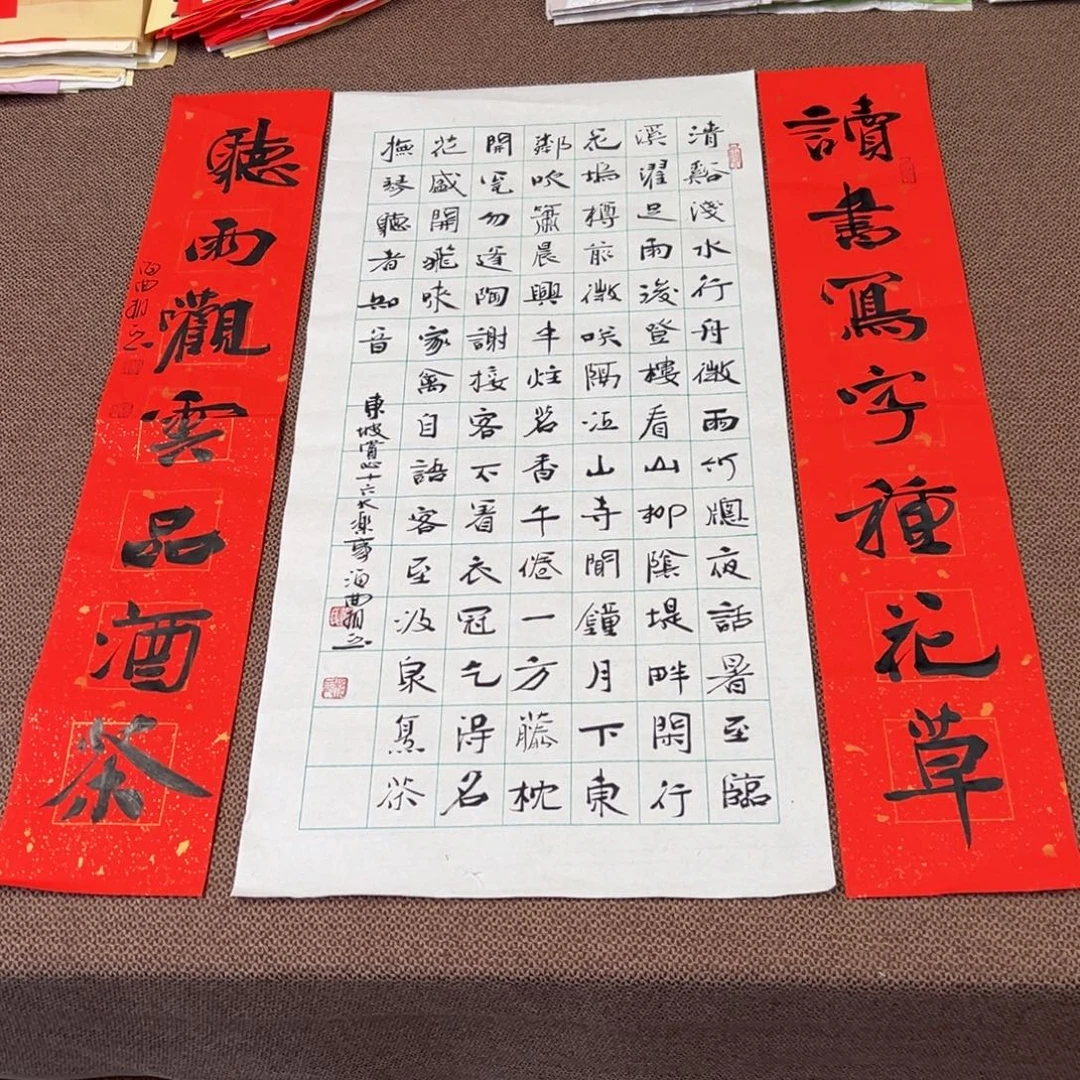 讀書寫字種花草
清谿淺水行舟微雨竹牕夜話暑至臨
溪濯足雨後登樓看山柳陰堤畔閑行
花塢樽前微笑隔江山寺聞鐘月下東
鄰吹簫晨興半炷茗香午倦一方藤枕
開甕勿逢陶謝接客不着衣冠乞得名
花盛開飛來家禽自語客至汲泉烹茶
撫琴聽者知音
東坡賞心十六大樂事 海曲
聽雨觀雲品酒茶
海曲